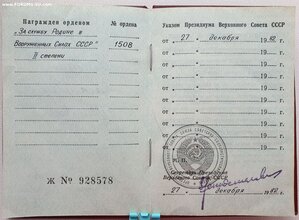 www.FORUMSU.com
Награжден орденом
№ ордена
"За службу Родине в
Вооруженных Силах СССР"
1508
II степени
Ж № 928578
Указом Президиума Верховного Совета СССР
от „ 27 " декабря 1982 г.
от „ " 19 г.
от „ " 19 г.
от „ " 19 г.
от „ " 19 г.
от „ " 19 г.
от „ " 19 г.
от „ " 19 г.
от „ " 19 г.
М. П.
Секретарь Президиума
Верховного Совета СССР
„ 27 " декабря 1982 г.